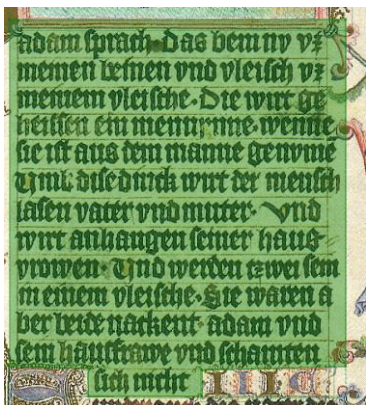 adam sprach · Das bein ny vz
meinen beinen vnd vleisch vz
meinem vleische · Die wirt ge
heissen ein mennynne · wenne
sie ist aus dem manne genome
vmb dise dinck wirt der mensch
lasen vater vnd mutter · Vnd
wirt anhangen seiner haus
vrowen · Vnd werden czwei sein
in einem vleische · Sie waren a
ber beide nackent · adam vnd
sein hausfrawe vnd schamten
sich nicht